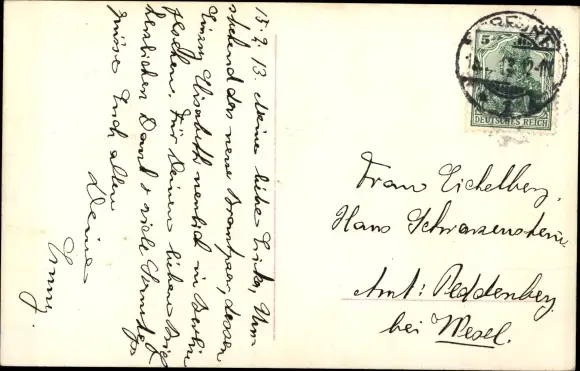 15.9.13. Meine liebe Erika, Um-
stehend das neue Brautpaar, dessen
Einzug Elisabeth neulich in Berlin
Für Deinen lieben Brief
herzlichen Dank & viele Sonntags-
grüsse Euch allen
Deine
Emmy.
5
DEUTSCHES REICH
Frau Eichelberg,
Haus Schwarzenstein
Amt: Peddenberg
bei Wesel.